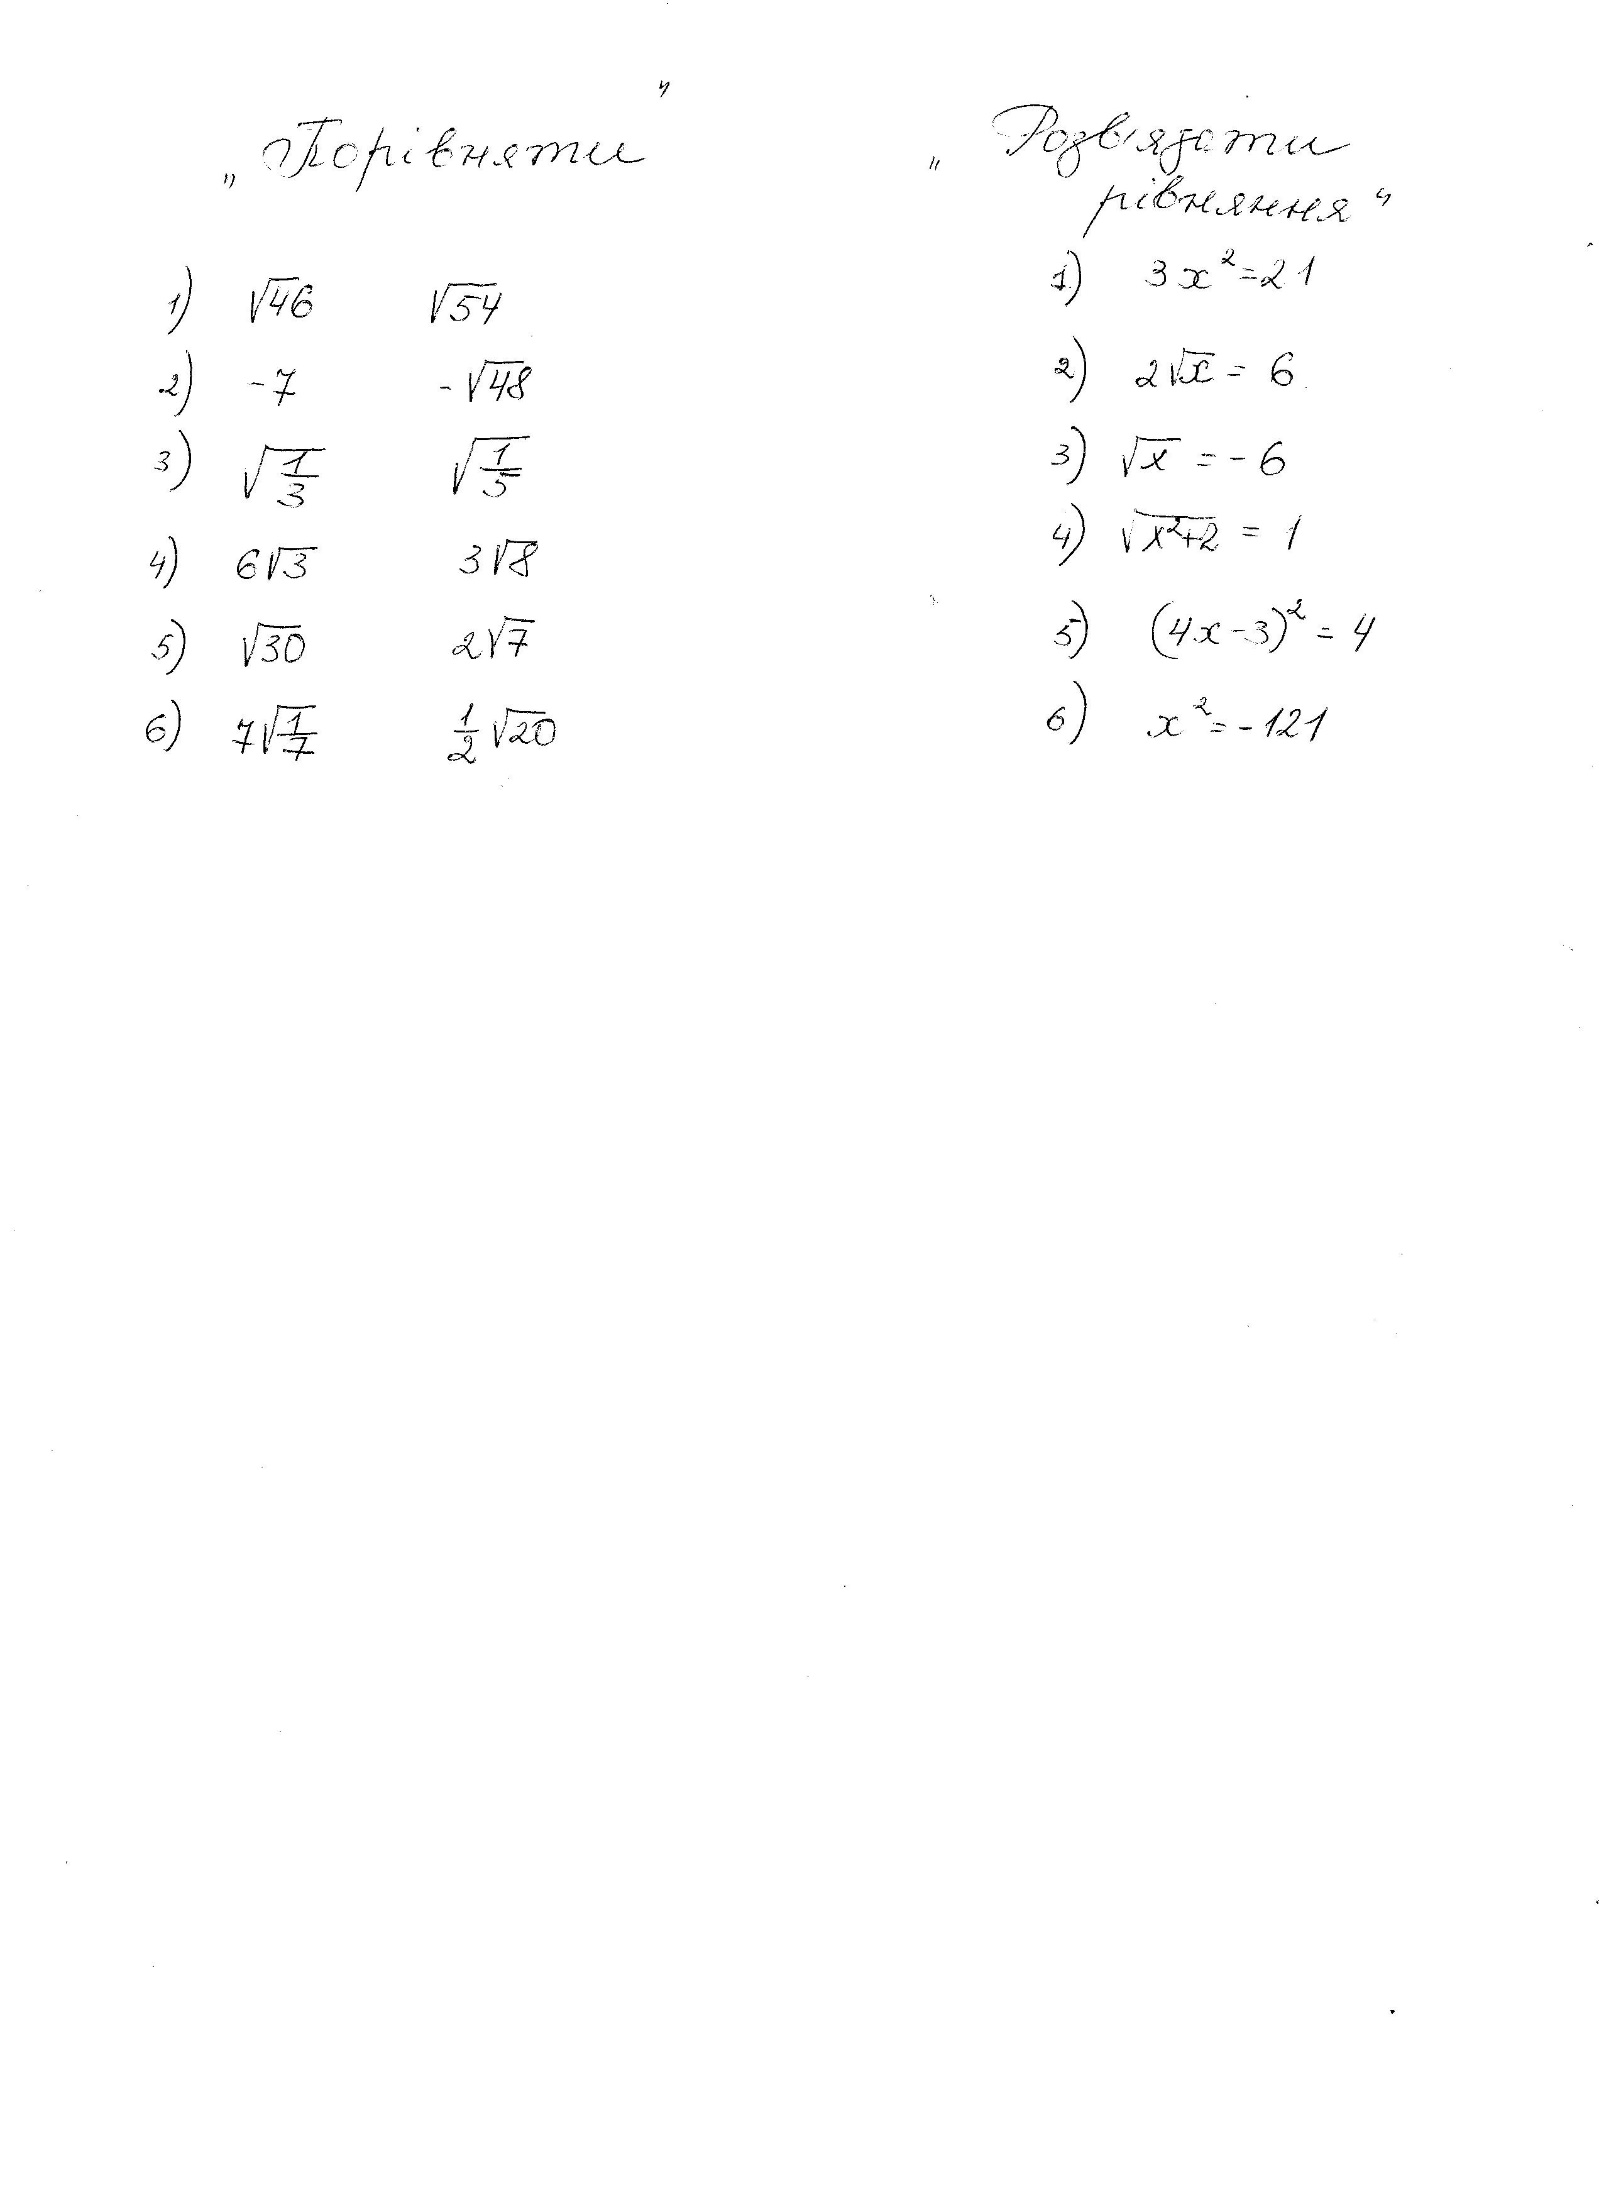 „Порівняти”
1) √46 √54
2) -7 -√48
3) √(1/3) √(1/5)
4) 6√3 3√8
5) √30 2√7
6) 7√(1/7) 1/2 √20
„Розв'язати
рівняння”
1) 3x² = 21
2) 2√x = 6
3) √x = -6
4) √(x²+2) = 1
5) (4x-3)² = 4
6) x² = -121